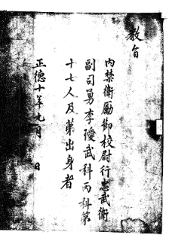 教旨
內禁衛勵節校尉行忠武衛
副司勇李優武科丙科第
十七人及第出身者
正德十年九月 日